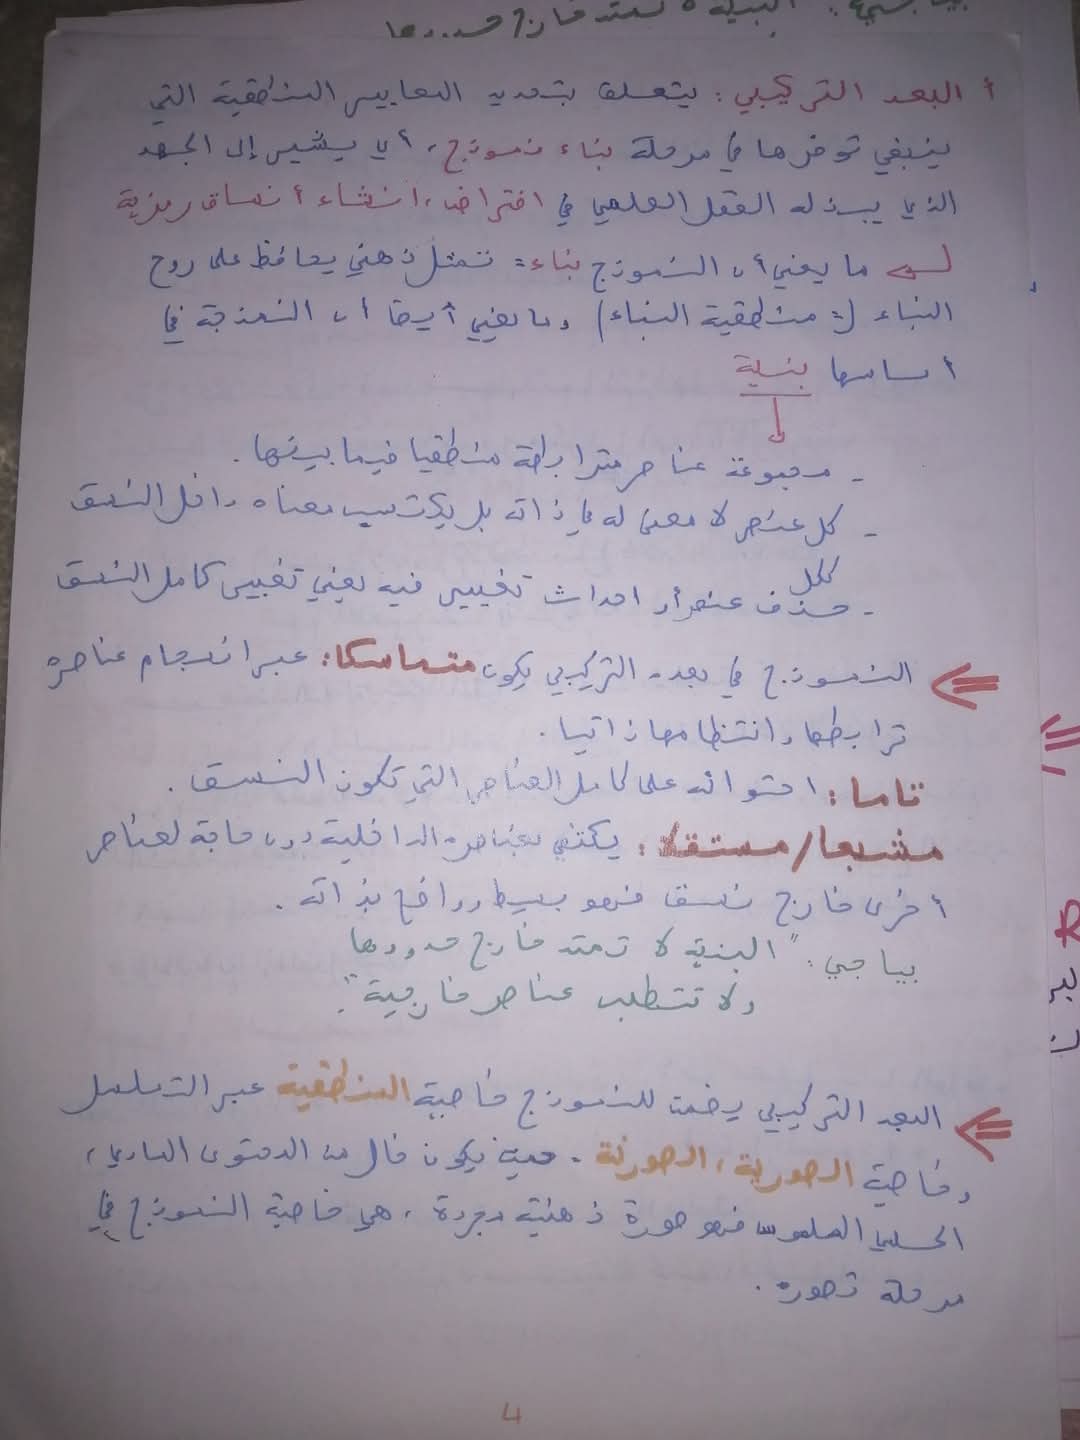 البنية لا تمتد خارج حدودها
أ البعد التركيبي: يتعلق بتحديد المعايير المنطقية التي
ينبغي توفرها في مرحلة بناء نموذج، أي يشير إلى الجهد
الذي يبذله العقل العلمي في افتراض، انشاء أنساق رمزية
ما يعني أن النموذج بناء = تمثل ذهني يحافظ على روح
البناء (= منطقية البناء) وما يعني أيضا أن النمذجة في
أساسها بنية
- مجموعة عناصر مترابطة منطقيا فيما بينها.
- كل عنصر لا معنى له في ذاته بل يكتسب معناه داخل النسق
ككل
- حذف عنصر أو احداث تغيير فيه يعني تغيير كامل النسق
النموذج في بعده التركيبي يكون متماسكا: عبر انسجام عناصره
ترابطها وانتظامها ذاتيا.
تاما: احتوائه على كامل العناصر التي تكون النسق.
مشبعا/مستقلا: يكتفي بعناصره الداخلية دون حاجة لعناصر
أخرى خارج نسق فهو بسيط وواضح بذاته.
بياجي: "البنية لا تمتد خارج حدودها
ولا تتطلب عناصر خارجية".
البعد التركيبي يضمن للنموذج خاصية المنطقية عبر التسلسل
وخاصية الصورية، الصورنة. حيث يكون خال من المحتوى المادي،
الحسي الملموس فهو صورة ذهنية مجردة، هي خاصية النموذج في
مرحلة تصوره.
4